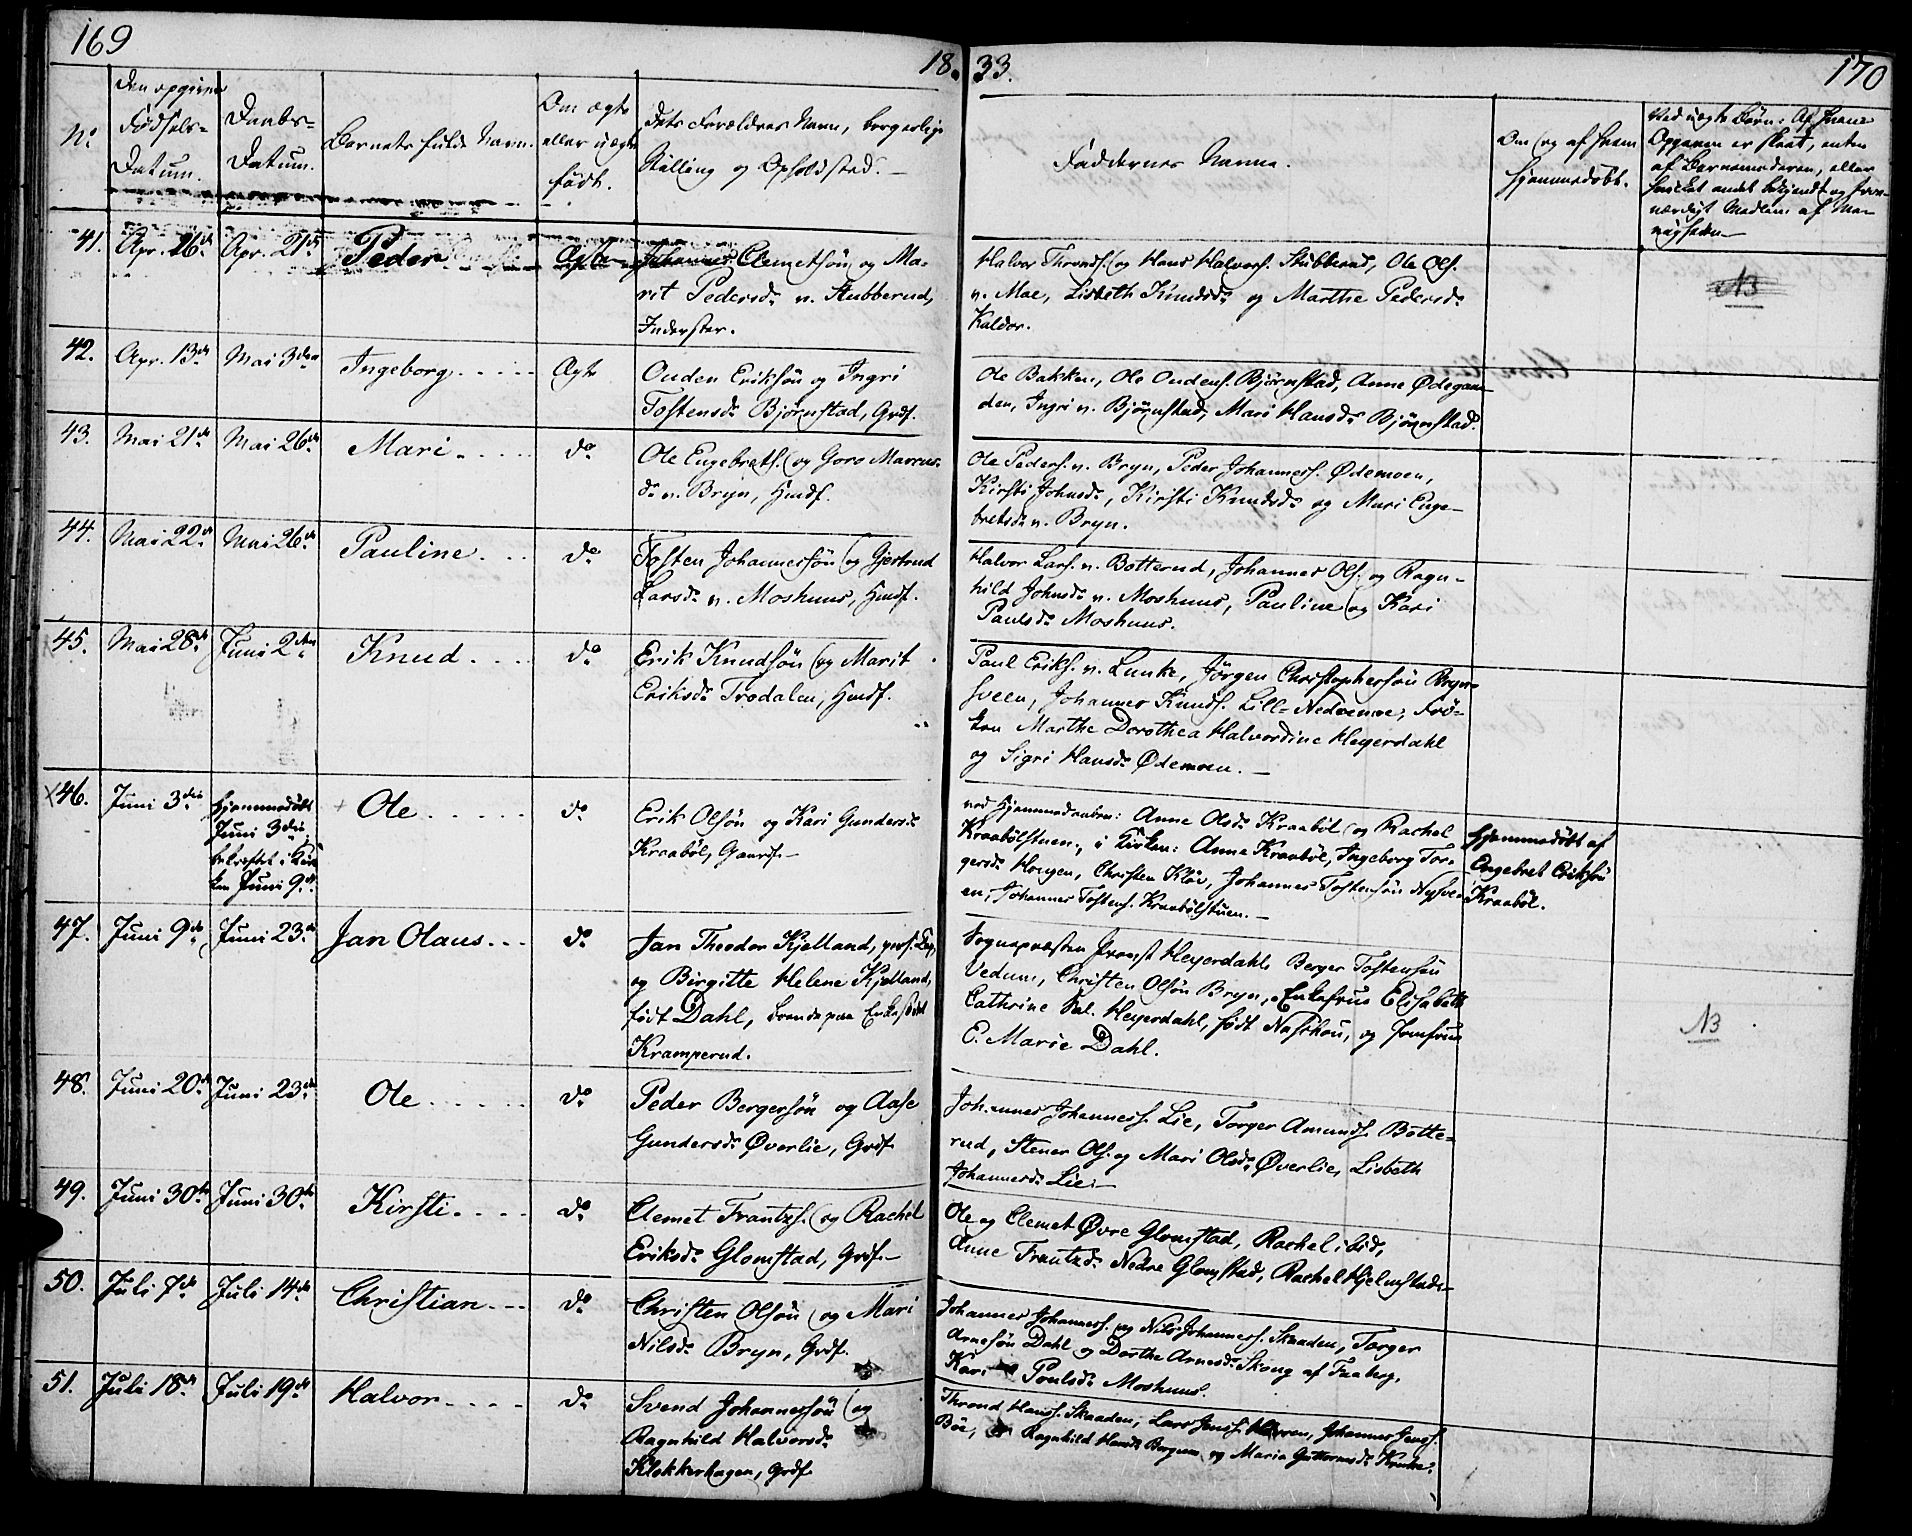 169
18.
33.
170
No
Den opgivne
Fødsels-
Datum.
Daabs-
Datum.
Barnets fulde Navn.
Om ægte
eller uægte
født.
Dets Forældres Navn, borgerlige
Stilling og Opholdsted.
Faddernes Navne.
Om og af hvem
hjemmedøbt.
Ved uægte Børn: Af hvem
Opgaven er skeet, enten
af Barnemoderen, eller
hvilket andet bekjendt og trov-
værdigt Medlem af Me-
nigheden
41.
Apr. 16de
Apr. 21de
Peder
Ægte
Johannes Clemetsøn og Ma-
rit Pedersdr v. Stubberud,
Inderster.
Halvor Thronds. og Hans Halvors. Stubberud, Ole Ols.
v. Moe, Lisbeth Knudsdr og Marthe Pedersdr
Kaldor.
NB
42.
Apr. 13de
Mai 3die
Ingeborg
Ægte
Ouden Eriksøn og Ingri
Tostensdr Bjørnstad, Grdf.
Ole Bakken, Ole Oudens. Bjørnstad, Anne Ødegaar-
den, Ingri v. Bjørnstad, Mari Hansdr Bjørnstad.
43.
Mai 21de
Mai 26de
Mari
do
Ole Engebrets. og Goro Marcus-
dr v. Bryn, Hmdf.
Ole Peders. v. Bryn, Peder Johanness. Ødemoen,
Kirsti Johnsdr, Kirsti Knudsdr og Mari Enge-
bretsdr v. Bryn.
44.
Mai 22de
Mai 26de
Pauline
do
Tosten Johannessøn og Gjertrud
Larsdr v. Moshuus, Hmdf.
Halvor Lars. v. Botterud, Johannes Ols. og Ragn-
hild Johnsdr v. Moshuus, Pauline og Kari
Paulsdr Moshuus.
45.
Mai 28de
Juni 2den
Knud
do
Erik Knudsøn og Marit
Eriksdr Trodalen, Hmdf.
Paul Eriks. v. Lunke, Jørgen Christophersøn Bryn-
sveen, Johannes Knuds. Lille-Nedremoe, Frø-
ken Marthe Dorothea Halvordine Heyerdahl
og Sigri Hansdr Ødemoen.
46.
Juni 3die
Hjemmedøbt
Juni 3die,
bekræftet i Kir-
ken Juni 9de
Ole
do
Erik Olsøn og Kari Gundersdr
Kraabøl, Gaardf.
ved Hjemmedaaben: Anne Olsdr Kraabøl og Rachel
Kraabølstuen, i Kirken: Anne Kraabøl, Ingeborg Tor-
gersdr Haugen, Christen Kløv, Johannes Tostensøn Nysve-
en, Johannes Tostens. Kraabølstuen.
Hjemmedøbt af
Engebret Eriksøn
Kraabøl.
47.
Juni 9de
Juni 23de
Jan Olaus
do
Jan Theodor Kjelland,
og Birgitte Helene Kjelland,
født Dahl, boende paa Enkesædet
Kramperud.
Sognepræsten Provst Heyerdahl, Berger Tostensøn
Vedum, Christen Olsøn Bryn, Enkefrue Elisabeth
Cathrine Sal. Heyerdahl, født Naschou, og Jomfrue
E. Marie Dahl.
NB
48.
Juni 20de
Juni 23de
Ole
do
Peder Bergersøn og Aase
Gundersdr Øverlie, Grdf.
Johannes Johanness. Lie, Torger Amunds. Botte-
rud, Stener Ols. og Mari Olsdr Øverlie, Lisbeth
Johannesdr Lie.
49.
Juni 30te
Juni 30te
Kirsti
do
Clemet Frantzs. og Rachel
Eriksdr Glomstad, Grdf.
Ole og Clemet Øvre Glomstad, Rachel ibid,
Anne Frantzdr Nedre Glomstad, Rachel Hjelmstad
50.
Juli 7de
Juli 14de
Christian
do
Christen Olsøn og Mari
Nilsdr Bryn, Grdf.
Johannes Johanness. og Nils Johanness. Skaaden, Torger
Arnesøn Dahl og Dorthe Arnesdr Skoug af Faaberg,
Kari Poulsdr Moshuus.
51.
Juli 18de
Juli 19de
Halvor
do
Svend Johannessøn og
Ragnhild Halvorsdr
Klokkerhagen, Grdf.
Thrond Hanss. Skaaden, Lars Jenss. Haven, Johannes Jenss.
Böe, Ragnhild Hansdr Bergum og Maria Guttormsdr Kruke.